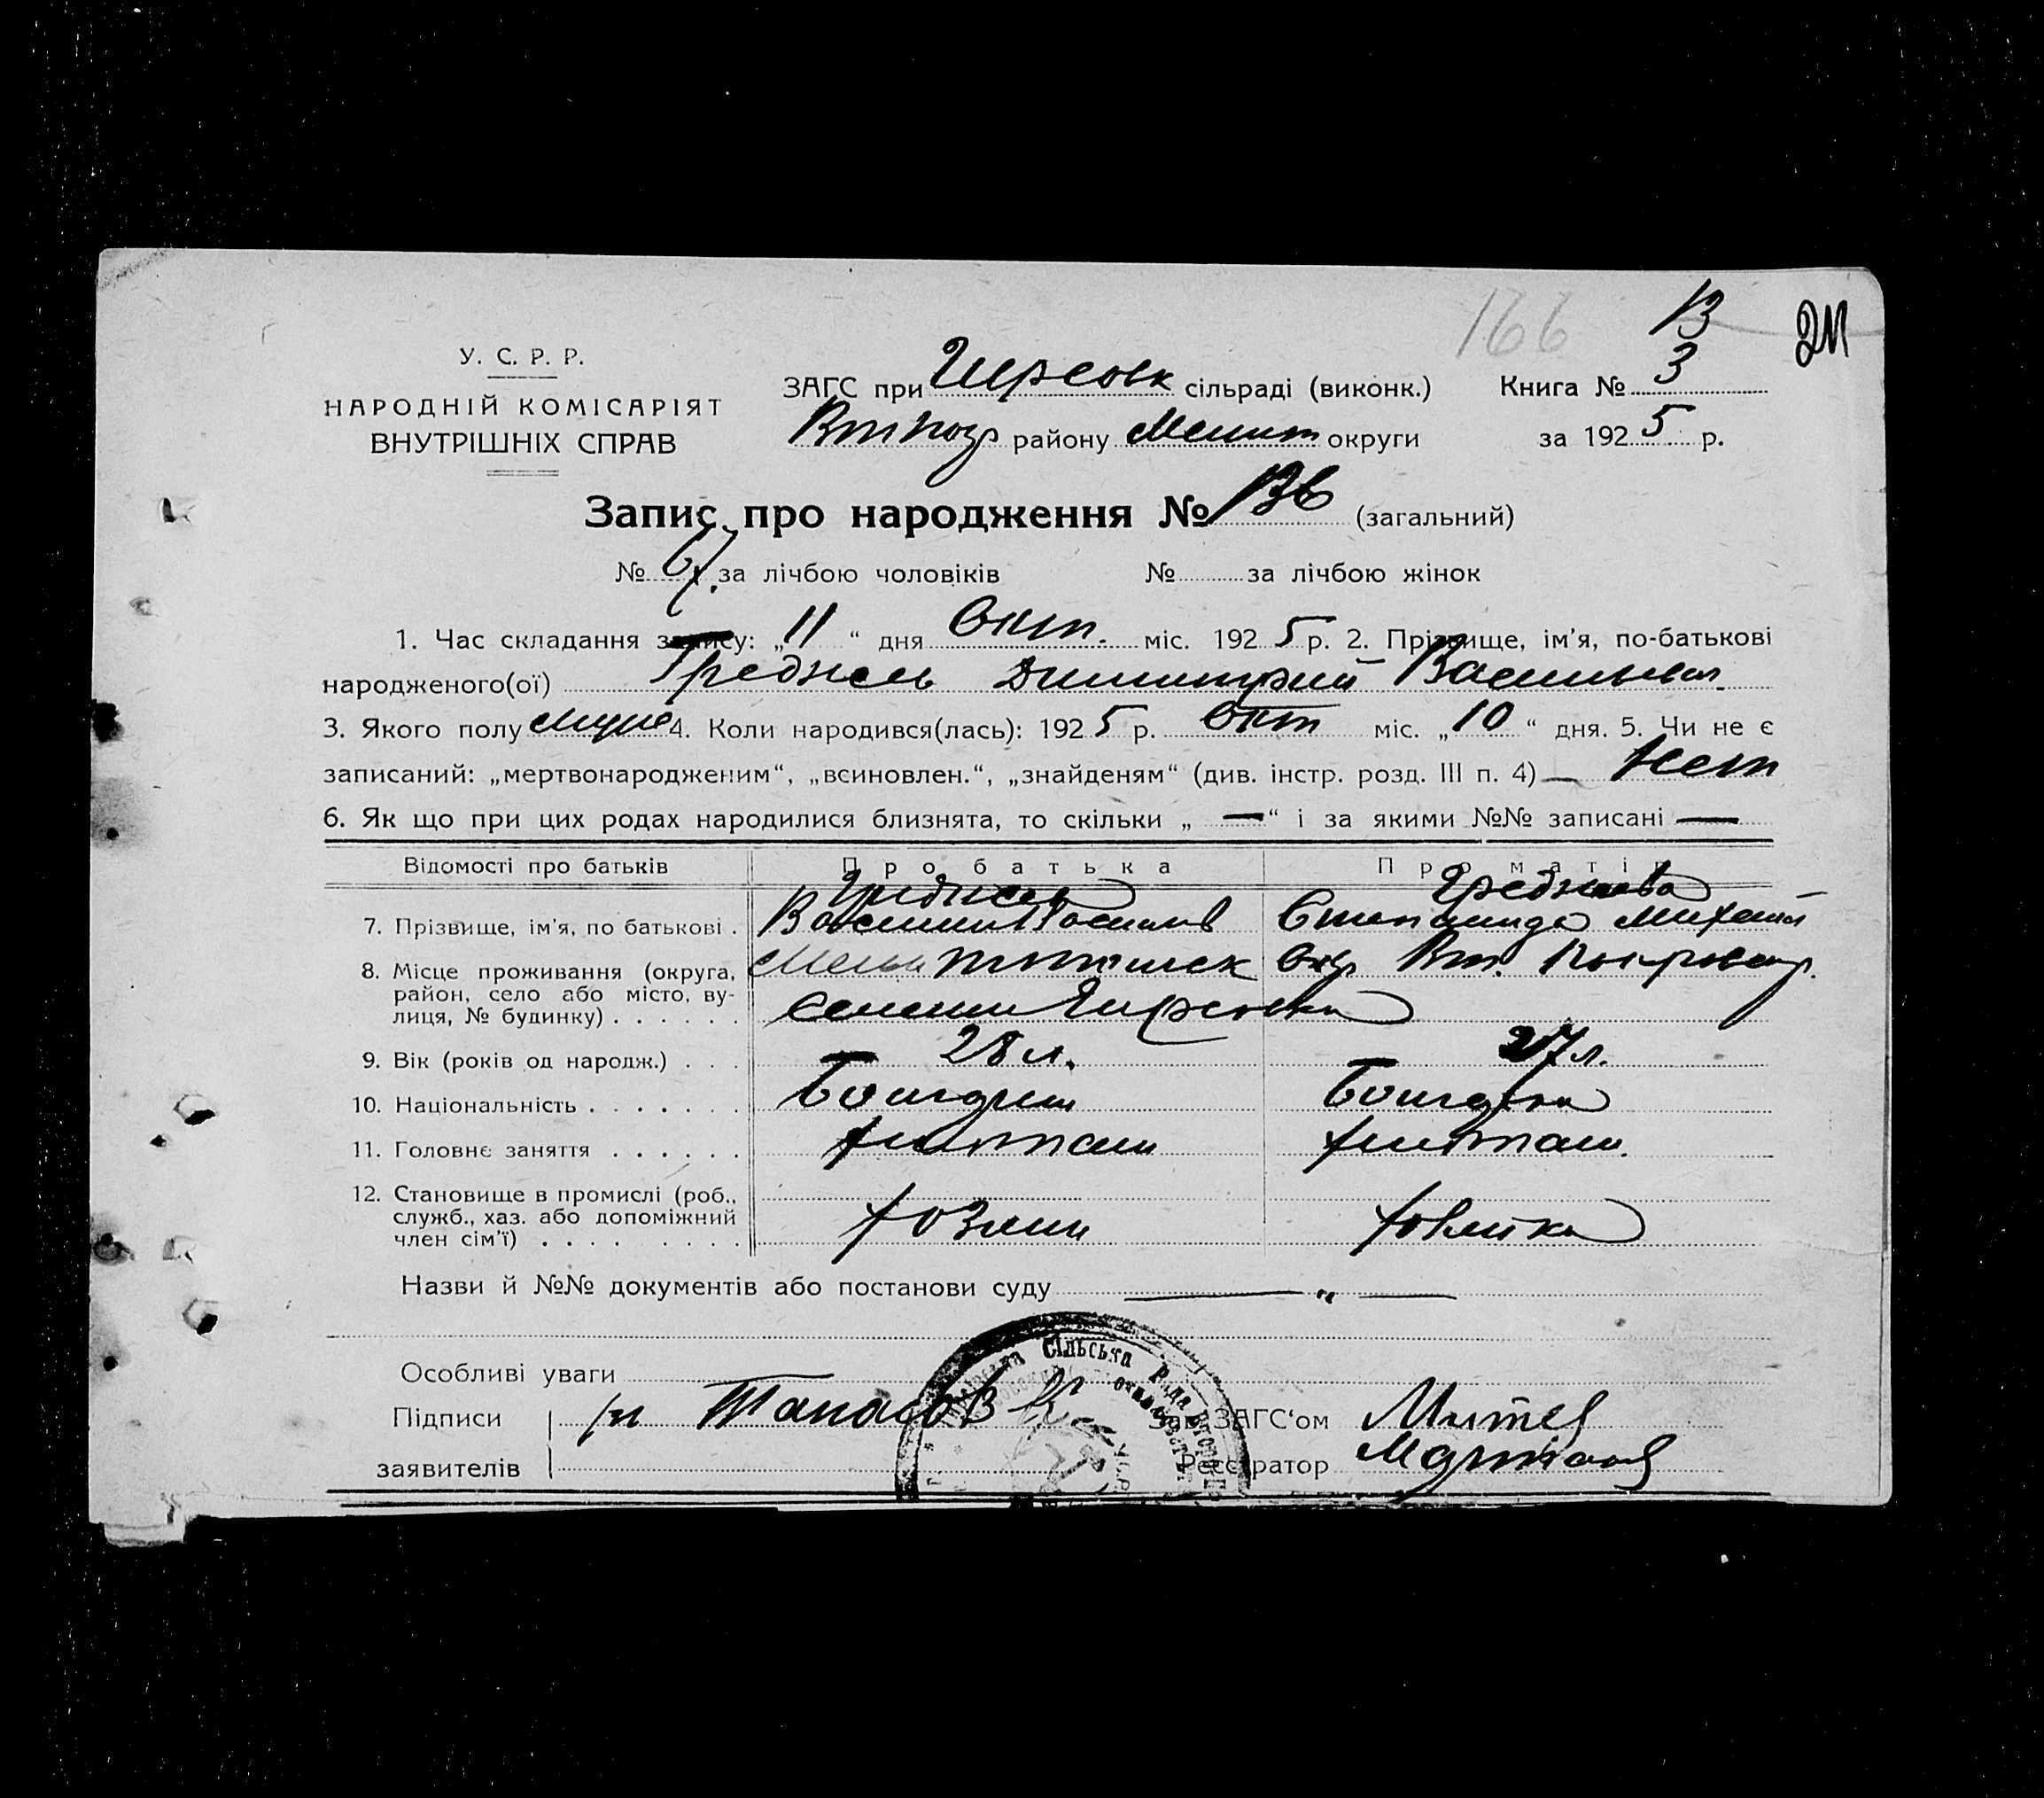 166 13
2М
У. С. Р. Р.
НАРОДНІЙ КОМІСАРІЯТ
ВНУТРІШНІХ СПРАВ
ЗАГС при Гирсовк сільраді (виконк.) Книга № 3
району Мелит округи за 1925 р.
Запис про народження № 136 (загальний)
№ 67. за лічбою чоловіків № за лічбою жінок
1. Час складання запису: „11“ дня Окт. міс. 1925 р. 2. Прізвище, ім'я, по-батькові
народженого(ої) Греджев Димитрий Васильев.
3. Якого полу муж 4. Коли народився(лась): 1925 р. Окт міс. „10“ дня. 5. Чи не є
записаний: „мертвонародженим“, „всиновлен.“, „знайденям“ (див. інстр. розд. III п. 4) — Нет
6. Як що при цих родах народилися близнята, то скільки „ — “ і за якими №№ записані —
Відомості про батьків Про батька Про матір
Греджев Греджева
7. Прізвище, ім'я, по батькові . Василий Василив Степанида Михайл
8. Місце проживання (округа, район, село або місто, вулиця, № будинку) . . . . . . Мелитопольск Окр Вт. Покровск р.
селении Гирсовка
9. Вік (років од народж.) . . . 28 л. 27 л.
10. Національність . . . . . . . Болгарин Болгарка
11. Головнє заняття . . . . . . хлюпаш хлюпаш.
12. Становище в промислі (роб., служб., хаз. або допоміжний член сім'ї) . . . . . . . . Хозяин Хозяйка
Назви й №№ документів або постанови суду — „ —
Особливі уваги
Підписи /п Танасов К. Зав. ЗАГС'ом Митев
заявителів Реєстратор
Сільська Рада